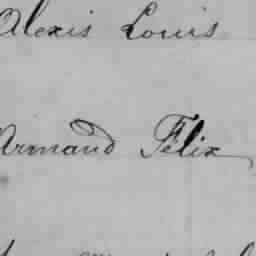 Alexis Louis
Armand Félix